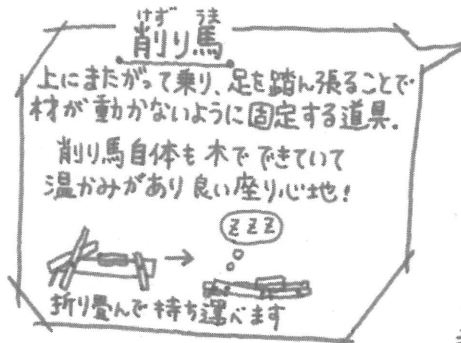 けず うま
削り馬
上にまたがって乗り、足を踏ん張ることで
材が動かないように固定する道具。
削り馬自体も木でできていて
温かみがあり良い座り心地!
→ zzz
折り畳んで持ち運べます